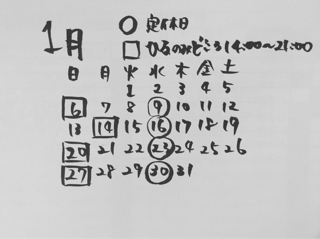 1月
○ 定休日
□ ひるのみどころ14:00〜21:00
日 月 火 水 木 金 土
1 2 3 4 5
6 7 8 9 10 11 12
13 14 15 16 17 18 19
20 21 22 23 24 25 26
27 28 29 30 31